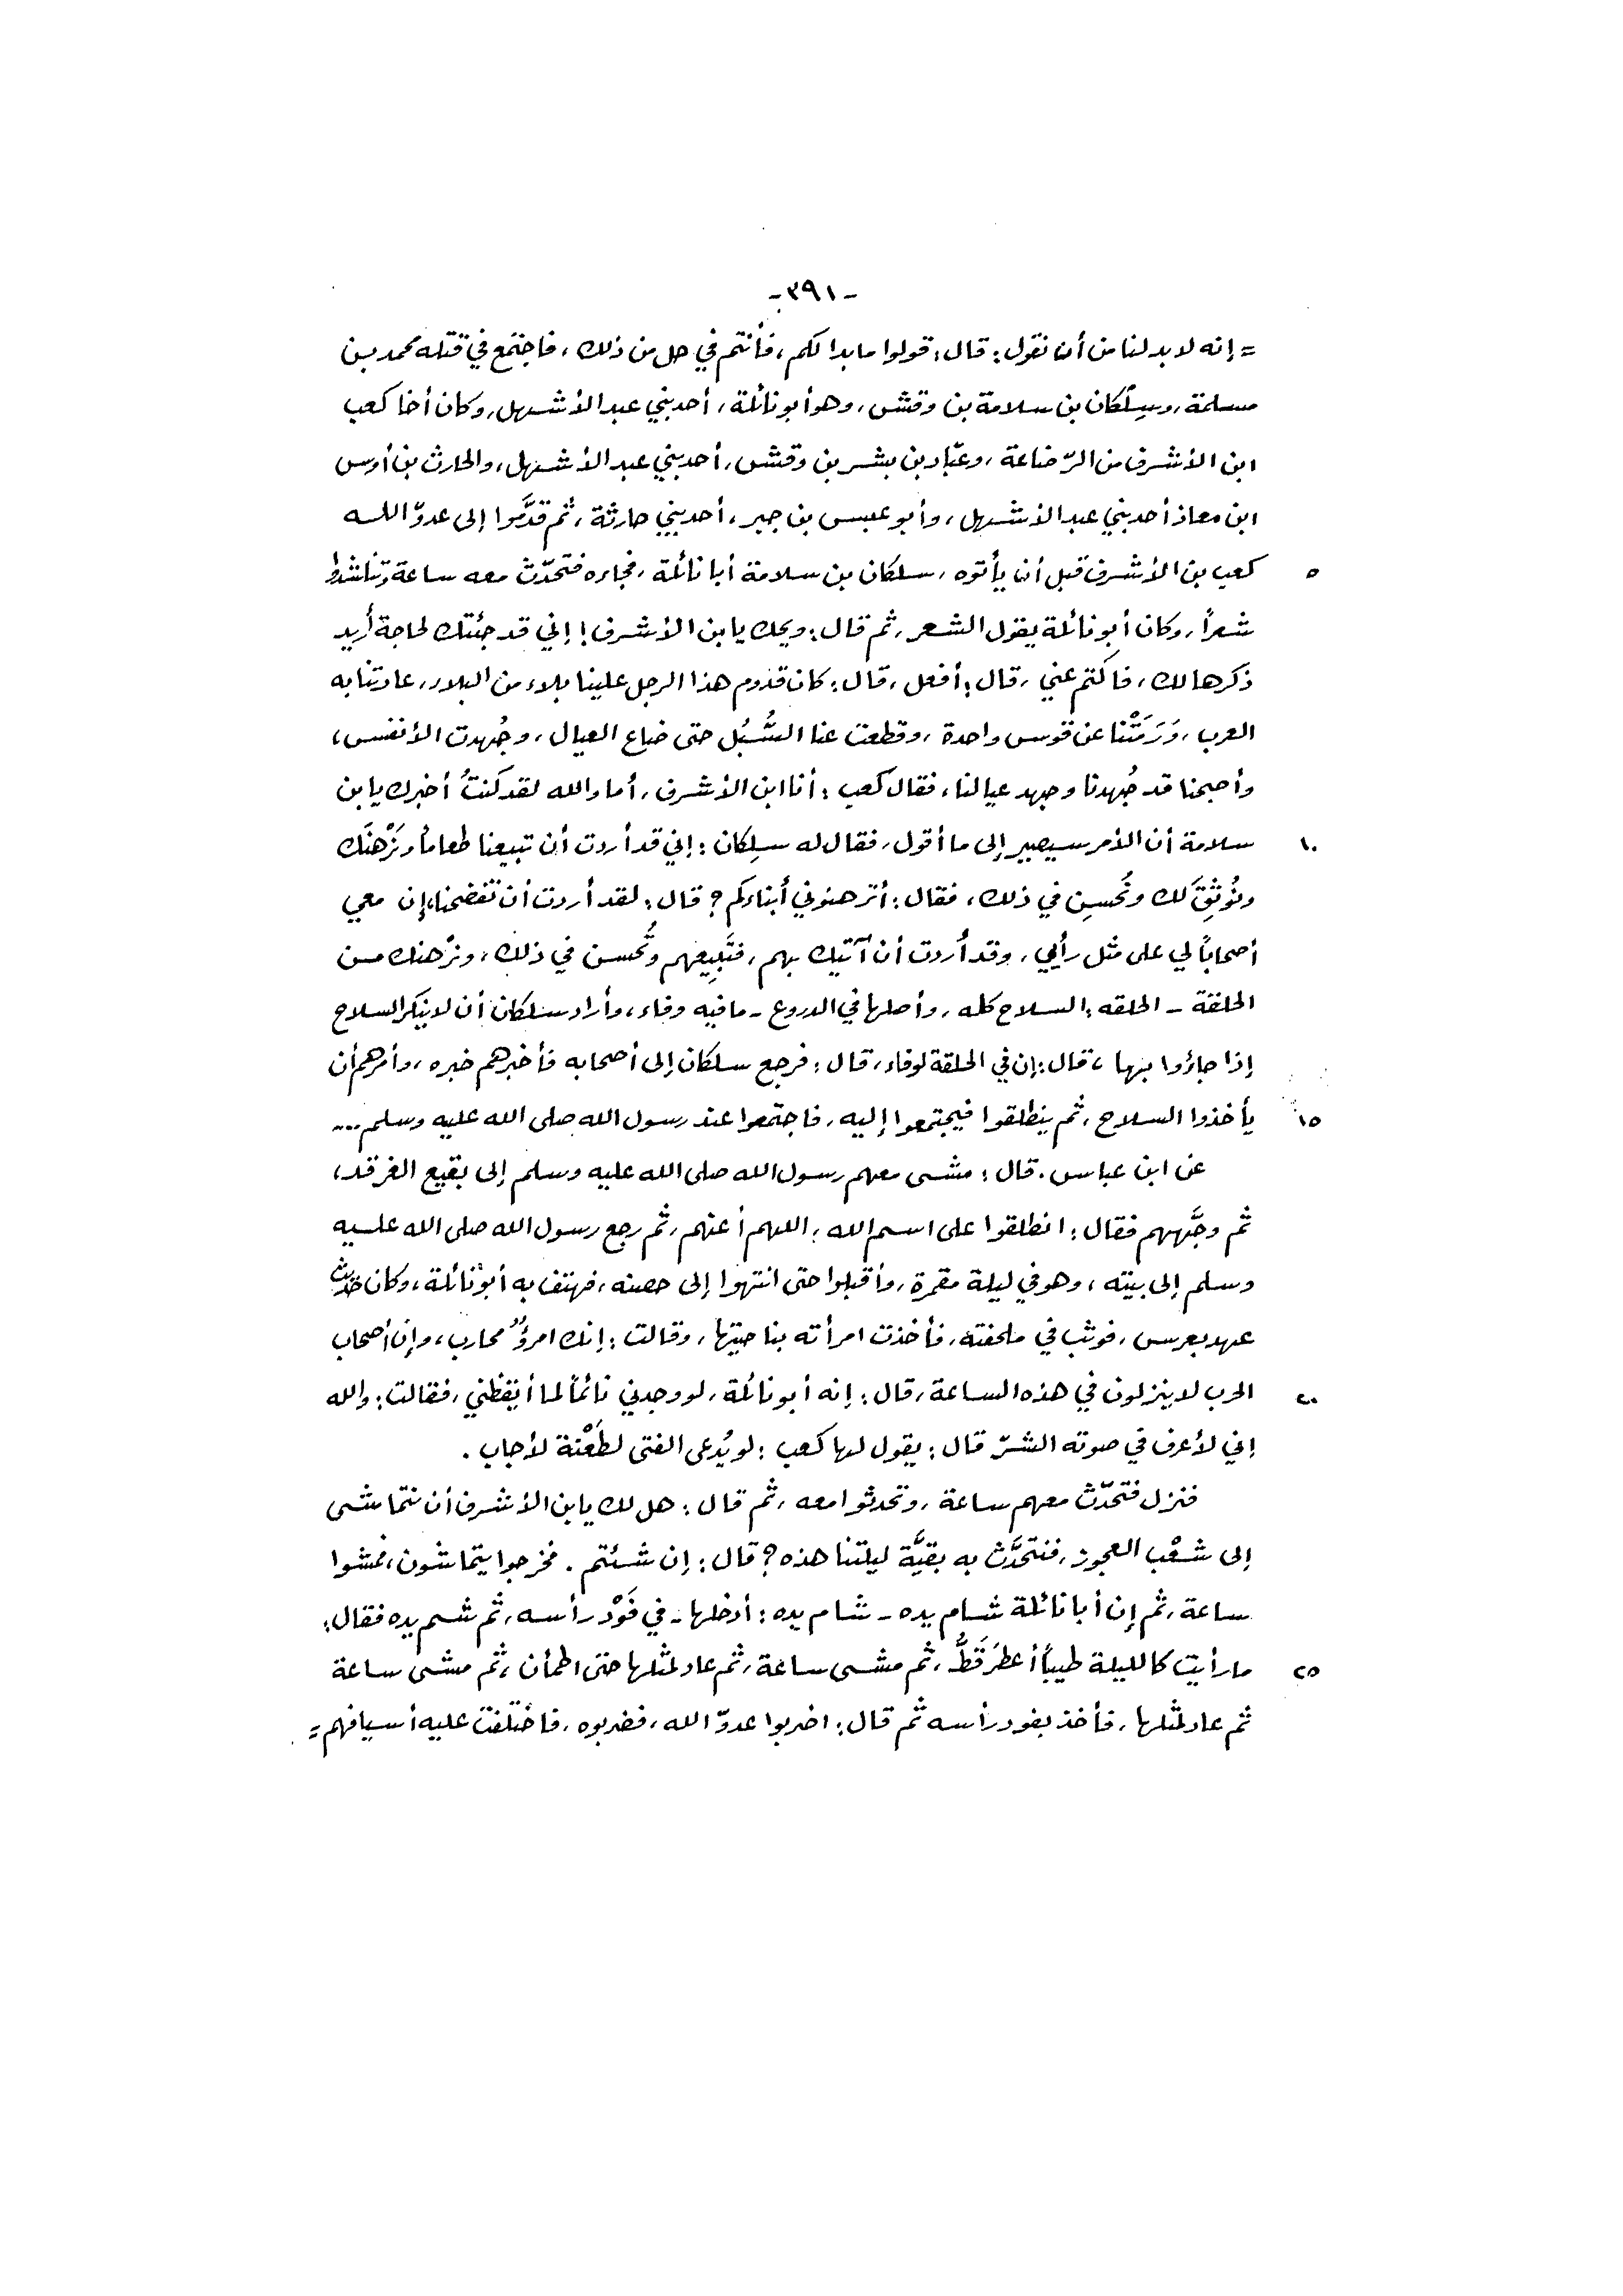 -٣٩١-
= إنه لا بد لنا من أن نقول: قال: قولوا ما بدا لكم، فأنتم في حل من ذلك، فاجتمع في قتله محمد بن
مسلمة، وسِلْكان بن سلامة بن وقش، وهو أبو نائلة، أحد بني عبد الأشهل، وكان أخا كعب
ابن الأشرف من الرّضاعة، وعبّاد بن بشر بن وقش، أحد بني عبد الأشهل، والحارث بن أوس
ابن معاذ أحد بني عبد الأشهل، وأبو عبس بن جبر، أحد بني حارثة، ثم قدَّموا إلى عدوّ اللـه
٥ كعب بن الأشرف قبل أن يأتوه، سلكان بن سلامة أبا نائلة، فجاءه فتحدّث معه ساعة وتناشدا
شعراً، وكان أبو نائلة يقول الشعر، ثم قال: ويحك يا بن الأشرف! إني قد جئتك لحاجة أُريد
ذكرها لك، فاكتم عني، قال: أفعل، قال: كان قدوم هذا الرجل علينا بلاء من البلاء، عادتنا به
العرب، وَرَمَتْنا عن قوس واحدة، وقطعت عنا السُّبُل حتى ضاع العيال، وجُهدت الأنفس،
وأصبحنا قد جُهدنا وجهد عيالنا، فقال كعب: أنا ابن الأشرف، أما والله لقد كنتُ أخبرك يا بن
١٠ سلامة أن الأمر سيصير إلى ما أقول، فقال له سِلكان: إني قد أردت أن تبيعنا طعاماً ونَرْهنَك
ونُوثِقَ لك ونُحسِن في ذلك، فقال: أترهنوني أبناءكم؟ قال: لقد أردت أن تفضحنا، إن معي
أصحاباً لي على مثل رأيي، وقد أردت أن آتيك بهم، فتَبِيعهم وتُحسن في ذلك، ونرْهنك مـن
الحلقة ـ الحلقه: السلاح كله، وأصلها في الدروع ـ ما فيه وفاء، وأراد سلكان أن لا ينكر السلاح
إذا جاؤوا بها، قال: إن في الحلقة لوفاء، قال: فرجع سلكان إلى أصحابه فأخبرهم خبره، وأمرهم أن
١٥ يأخذوا السلاح، ثم ينطلقوا فيجتمعوا إليه، فاجتمعوا عند رسول الله صلى الله عليه وسلم ...
عن ابن عباس. قال: مشى معهم رسول الله صلى الله عليه وسلم إلى بقيع الغرقد،
ثم وجَّههم فقال: انطلقوا على اسم الله: اللهم أعنهم، ثم رجع رسول الله صلى الله عليه
وسلم إلى بيته، وهو في ليلة مقمرة، وأقبلوا حتى انتهوا إلى حصنه، فهتف به أبو نائلة، وكان حديث
عهد بعرس، فوثب في ملحفته، فأخذت امرأته بناحيتها، وقالت: إنك امرؤٌ محارب، وإن أصحاب
٢٠ الحرب لا ينزلون في هذه الساعة، قال: إنه أبو نائلة، لو وجدني نائماً لما أيقظني، فقالت: والله
إني لأعرف في صوته الشرّ قال: يقول لها كعب: لو يُدعى الفتى لطَعْنة لأجاب.
فنزل فتحدّث معهم ساعة، وتحدثوا معه، ثم قال: هل لك يا بن الأشرف أن نتماشى
إلى شعْب العجوز، فنتحدَّث به بقيَّة ليلتنا هذه؟ قال: إن شئتم. فخرجوا يتماشون، فمشوا
ساعة، ثم إن أبا نائلة شام يده ـ شام يده: أدخلها ـ في فَوْد رأسه، ثم شم يده فقال:
٢٥ ما رأيت كالليلة طيباً أعطَرَ قَطُّ، ثم مشى ساعة، ثم عاد لمثلها حتى اطمأن، ثم مشى ساعة
ثم عاد لمثلها، فأخذ بفود رأسه ثم قال: اضربوا عدوّ الله، فضربوه، فاختلفت عليه أسيافهم =